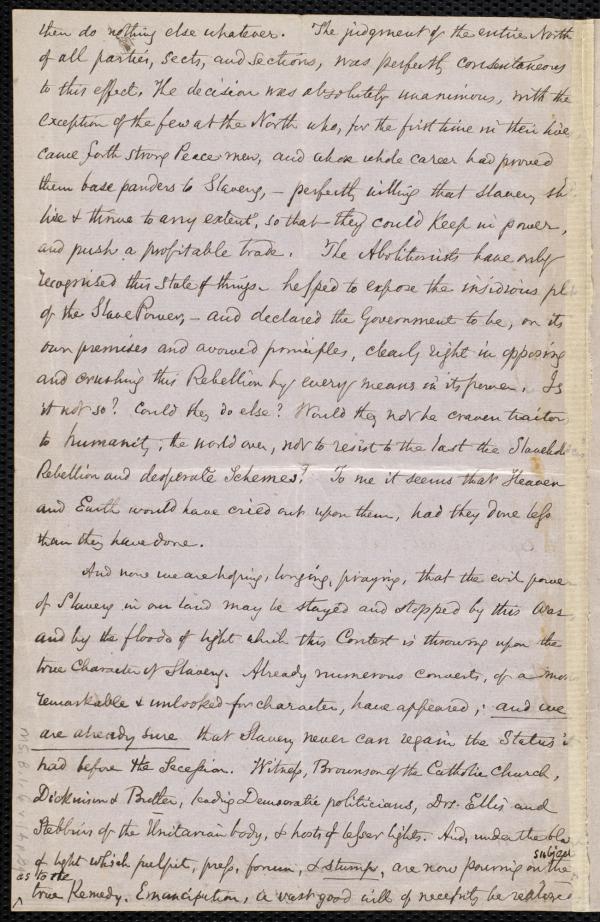 then do nothing else whatever. The judgment of the entire North
of all parties, sects, and sections, was perfectly consentaneous
to this effect. The decision was absolutely unanimous, with the
exception of the few at the North who, for the first time in their live
came forth strong Peace men, and whose whole career had proved
them base panders to Slavery, – perfectly willing that slavery sh
live & thrive to any extent, so that they could keep in power,
and push a profitable trade. The Abolitionists have only
recognised this state of things – helped to expose the insidious pl
of the Slave Power, – and declared the Government to be, on its
own premises and avowed principles, clearly right in opposing
and crushing this Rebellion by every means in its power. Is
it not so? Could they do else? Would they not be craven traitor
to humanity, the world over, not to resist to the last the Slavehold
Rebellion and desperate Schemes? To me it seems that Heaven
and Earth would have cried out upon them, had they done less
than they have done.
And now we are hoping, longing, praying, that the evil power
of Slavery in our land may be stayed and stopped by this War
and by the floods of light which this Contest is throwing upon the
true Character of Slavery. Already numerous converts, of a mo
remarkable & unlooked-for character, have appeared; and we
are already sure that Slavery never can regain the Status it
had before the Secession. Witness, Brownson of the Catholic Church,
Dickinson & Butler, leading Democratic politicians, Drs. Ellis and
Stebbins of the Unitarian body, & hosts of lesser lights. And, under the bla
of light which pulpit, press, forum, & stump, are now pouring on the subject
as to the
true Remedy, Emancipation, a vast good will of necessity be